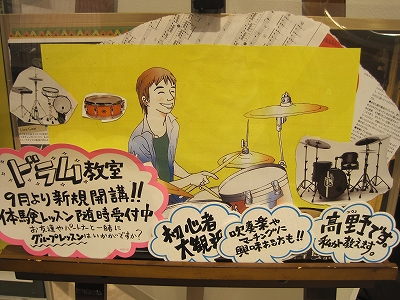 ドラム教室
9月より新規開講!!
体験レッスン随時受付中
お友達やパートナーと一緒に
グループレッスンはいかがですか?
初心者
大歓迎
吹奏楽や
マーチングに
興味ある方も!!
高野です。
私が教えます。